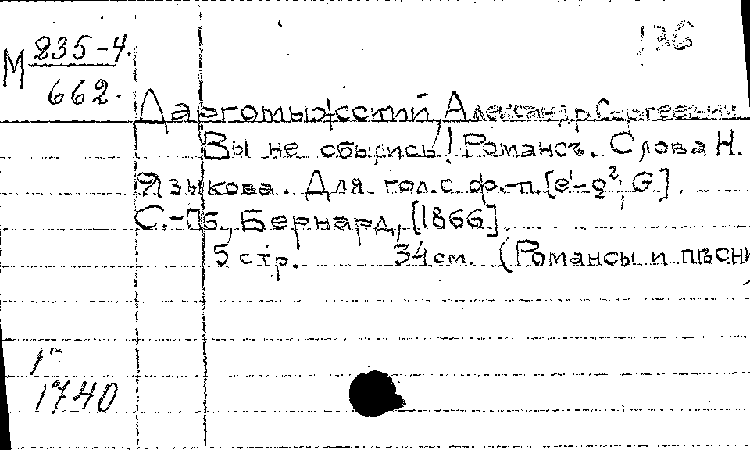 М 235-4. 136
662.
Даргомыжский, Александр Сергеевич
Вы не сбылись! Романсъ. Слова Н.
Языкова. Для гол. с ф.-п. [e¹-g², G].
С.-Пб., Бернард, [1866].
5 стр. 34 см. (Романсы и пѣсни
1740